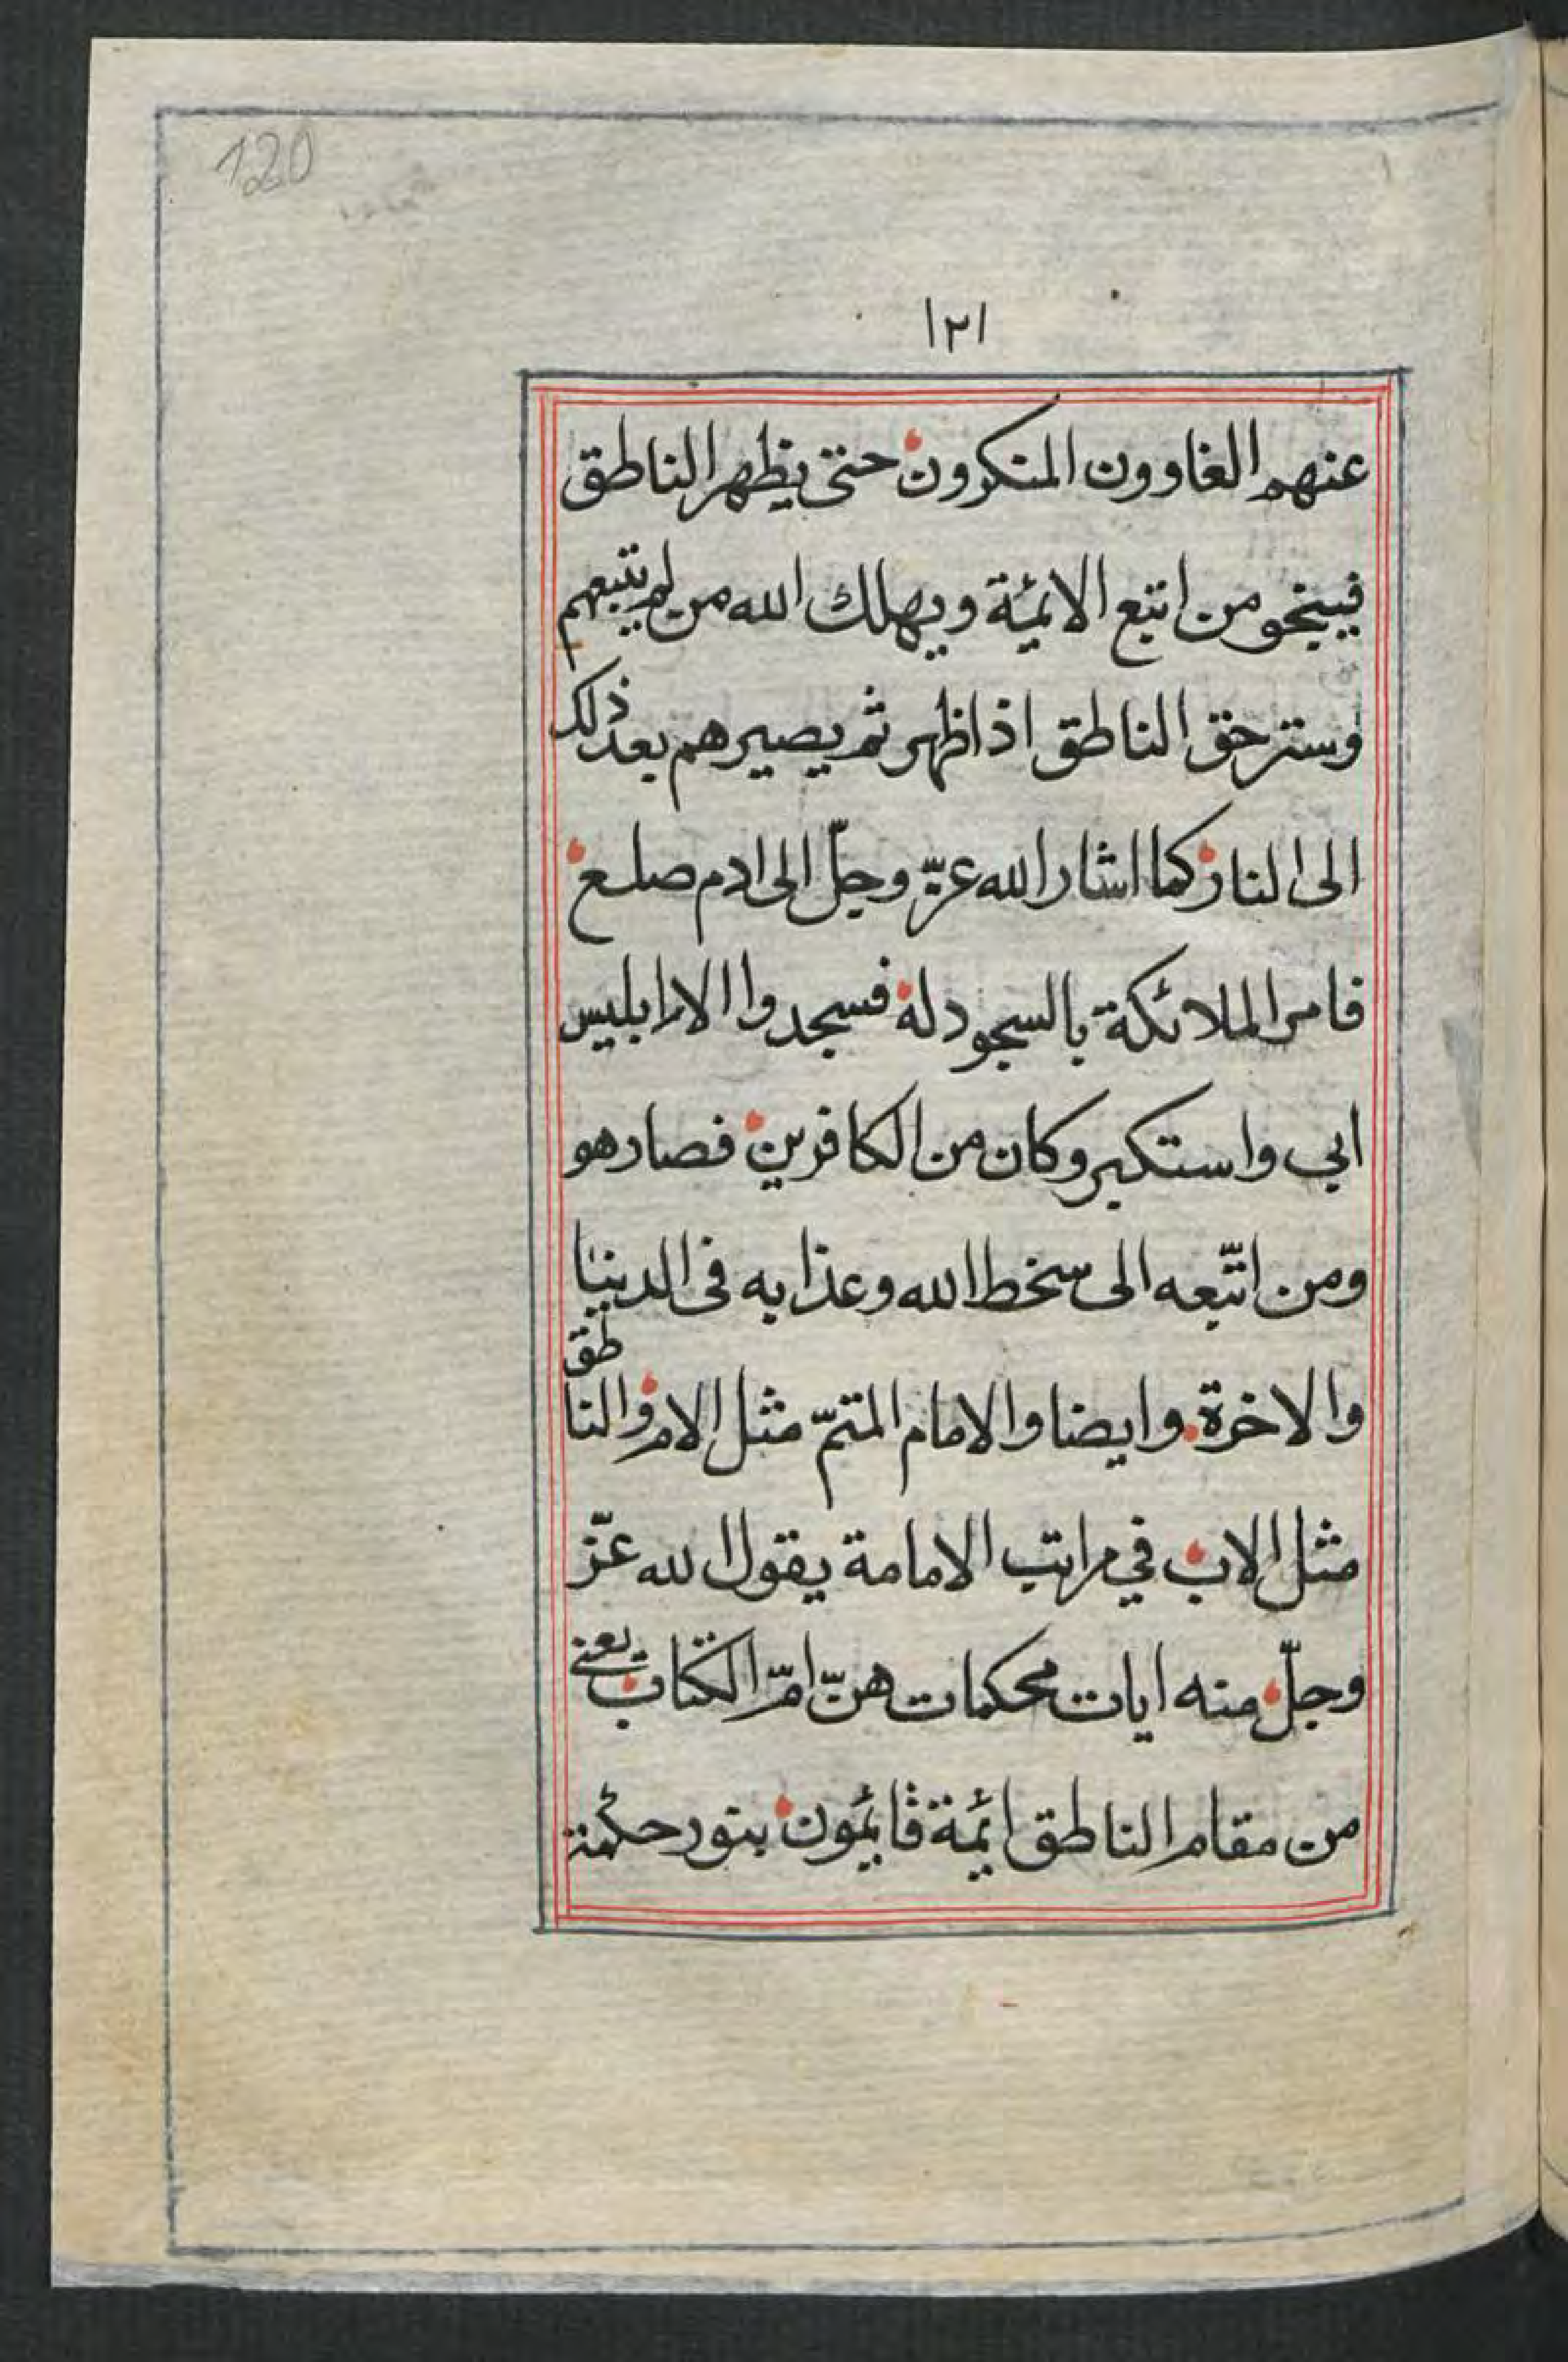 120
١٢١
عنهم الغاوون المنكرون حتى يظهر الناطق
فينجو من اتبع الائمة ويهلك الله من لم يتبعهم
وستر حق الناطق اذا ظهر ثم يصيرهم بعد ذلك
الى النار كما اشار الله عزّ وجلّ الى ادم صلع
فامر الملائكة بالسجود له فسجدوا الا ابليس
ابى واستكبر وكان من الكافرين فصار هو
ومن اتّبعه الى سخط الله وعذابه فى الدنيا
والاخرة وايضا والامام المتمّ مثل الام والناطق
مثل الاب في مراتب الامامة يقول الله عزّ
وجلّ منه ايات محكمات هنّ امّ الكتاب يعني
من مقام الناطق ائمة قائمون بنور حكمة